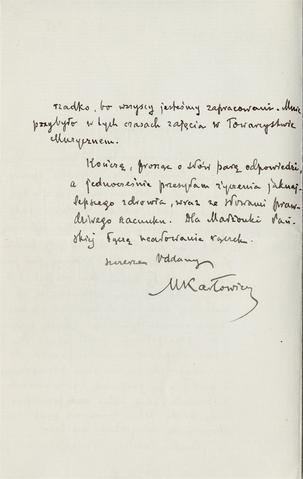 rzadko, bo wszyscy jesteśmy zapracowani. Mnie
przybyło w tych czasach zajęcia w Towarzystwie
Muzycznem.
Kończę, prosząc o słów parę odpowiedzi,
a jednocześnie przesyłam życzenia jaknaj-
lepszego zdrowia, wraz ze słowami praw-
dziwego szacunku. Dla Małżonki Pań-
skiej łączę ucałowanie rączek.
szczerze oddany
MKarłowicz